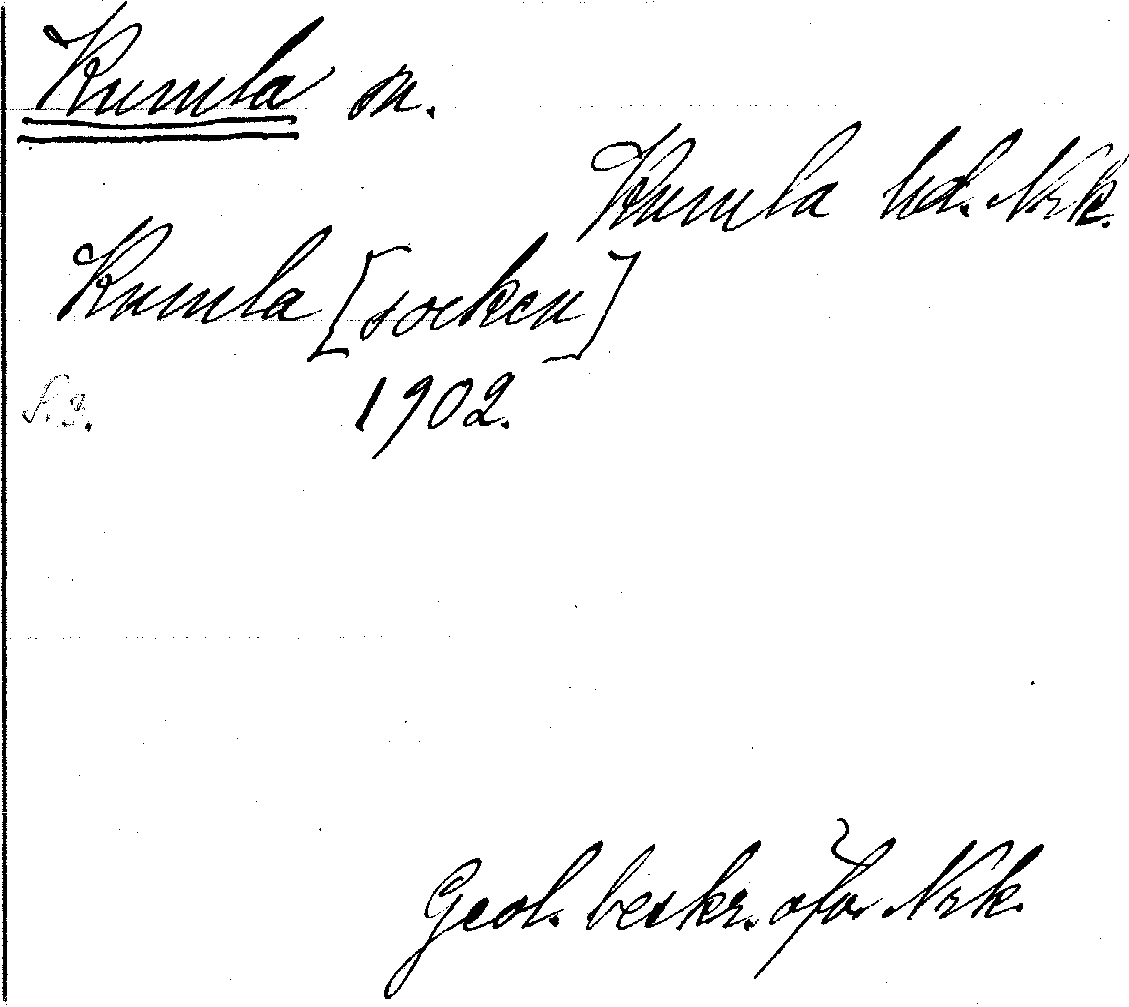 Kumla sn.
Kumla hd. Nrk.
Kumla [socken]
1902.
Geol. beskr. öfv. Nrk.